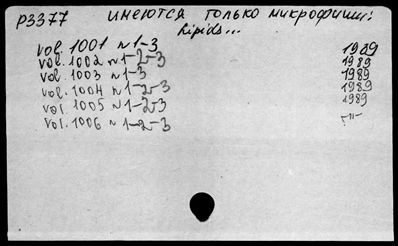 P3377 имеются только микрофиши:
Lipids...
vol. 1001 n 1-3 1989
vol. 1002 n 1-2-3 1989
vol. 1003 n 1-3 1989
vol. 1004 n 1-2-3 1989
vol. 1005 n 1-2-3 1989
vol. 1006 n 1-2-3 -"-